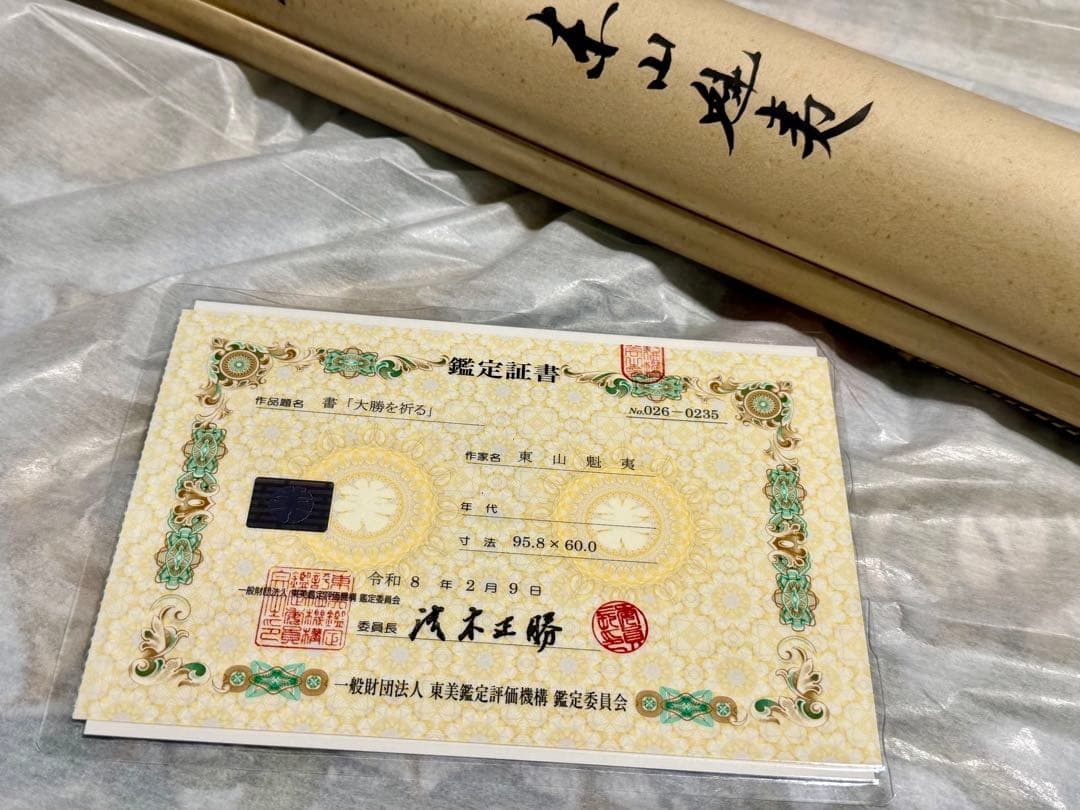 東山魁夷
鑑定証書
作品題名 書「大勝を祈る」
No.026-0235
作家名 東山魁夷
年代
寸法 95.8×60.0
令和8年2月9日
一般財団法人 東美鑑定評価機構 鑑定委員会
委員長 浅木正勝
一般財団法人 東美鑑定評価機構 鑑定委員会